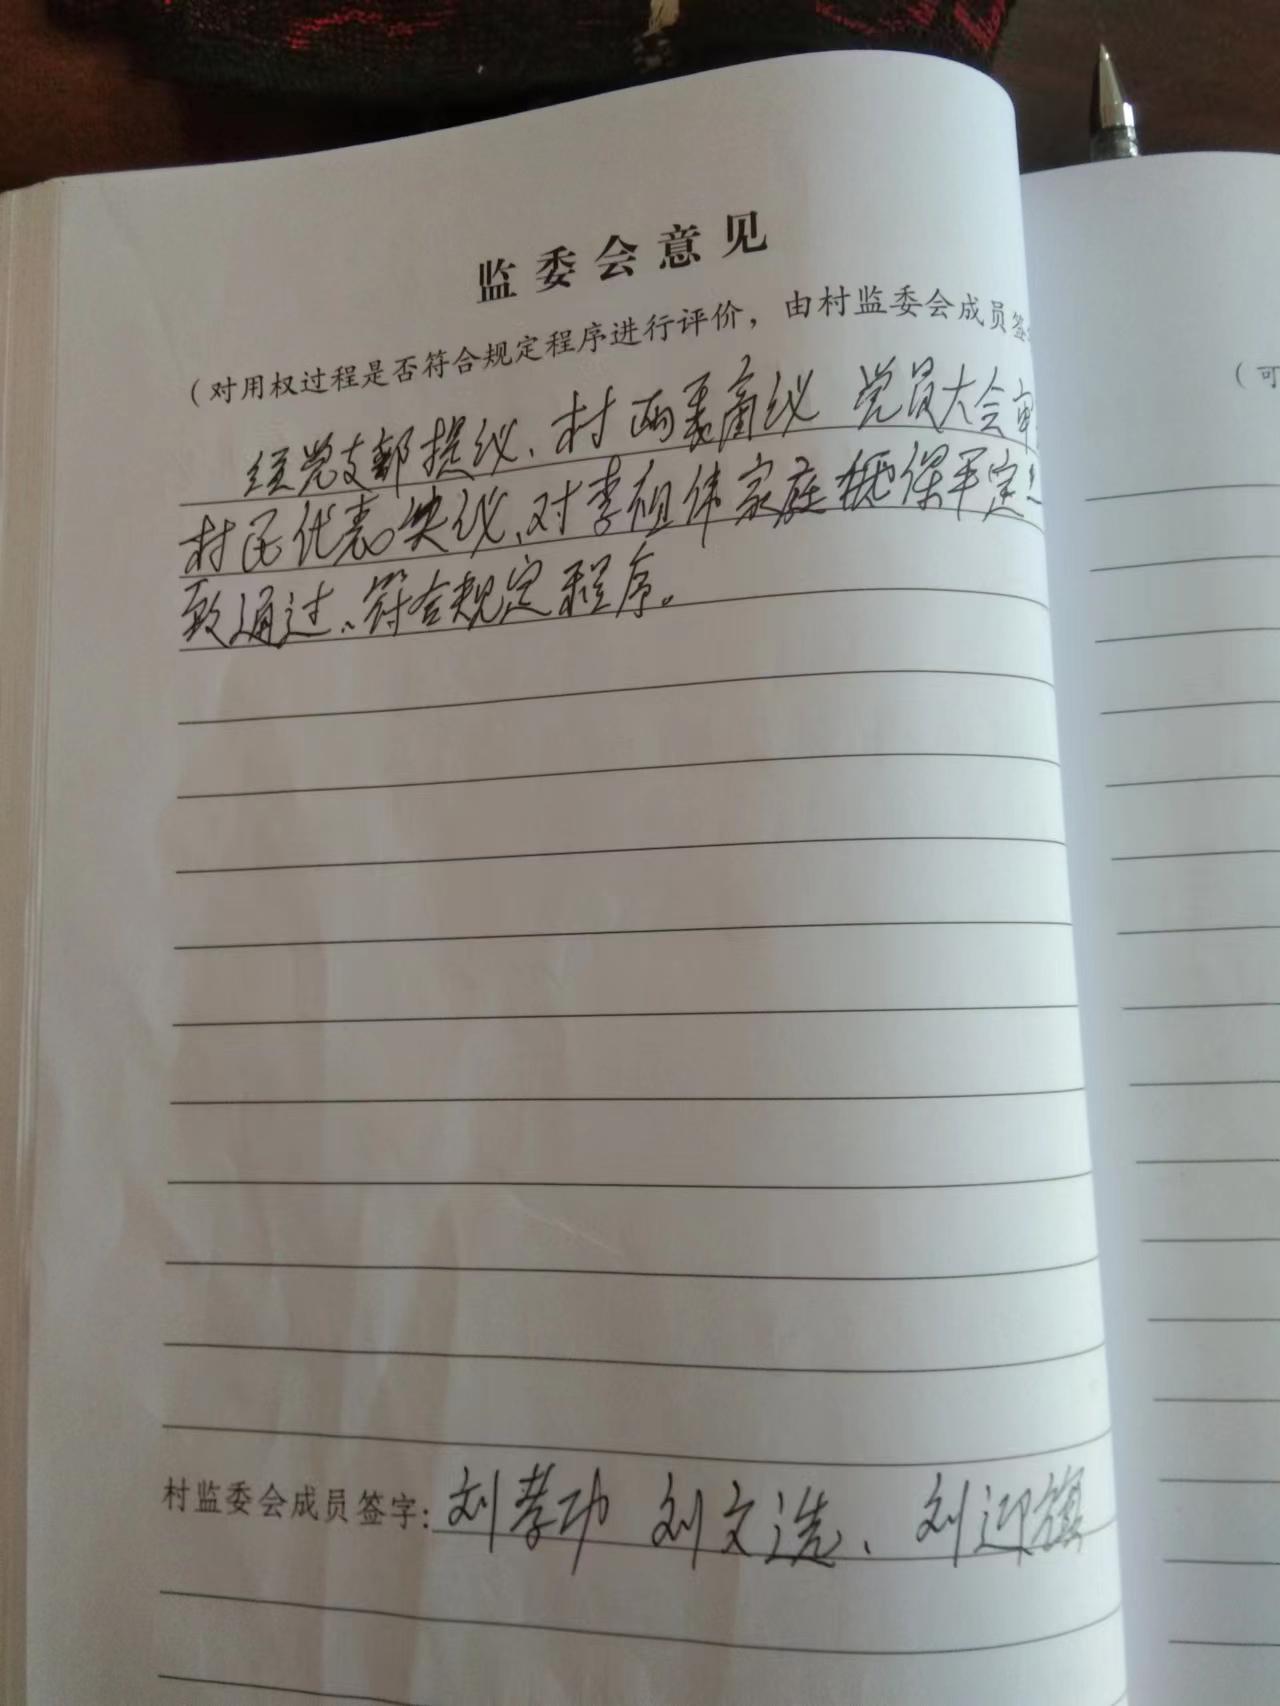 监委会意见
（对用权过程是否符合规定程序进行评价，由村监委会成员签
（可
经党支部提议、村两委商议 党员大会审
村民代表决议、对李祖伟家庭低保评定
致通过、符合规定程序。
村监委会成员签字：刘孝功 刘文选、刘迎旗